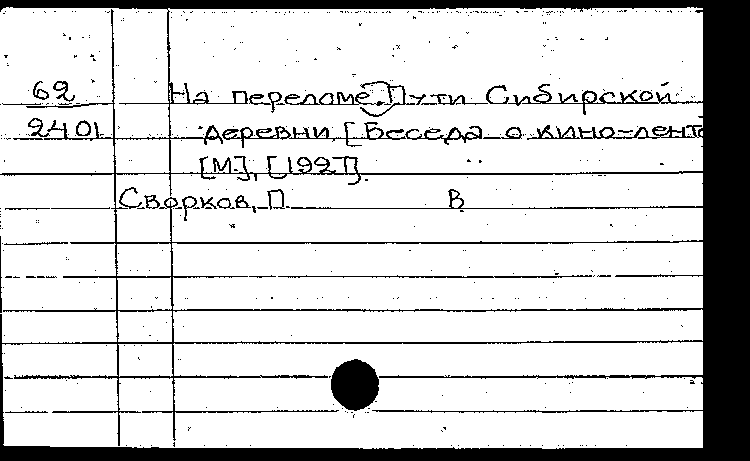 62 На переломе. Пути Сибирской
2401 деревни, [Беседа о кино-ленте
[М], [1927].
Сворков, П. В